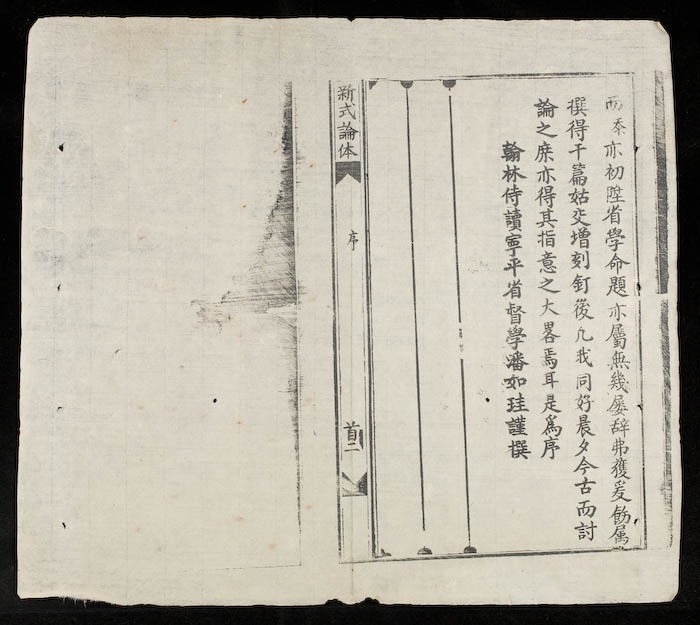 而忝亦初陞省學命題亦屬無幾屡辞弗獲爰飭属
撰得干篇姑交增刻釘後凢我同好晨夕今古而討
論之庶亦得其指意之大畧焉耳是爲序
翰林侍讀寧平省督學潘如珪謹撰
新式論体
序
首二